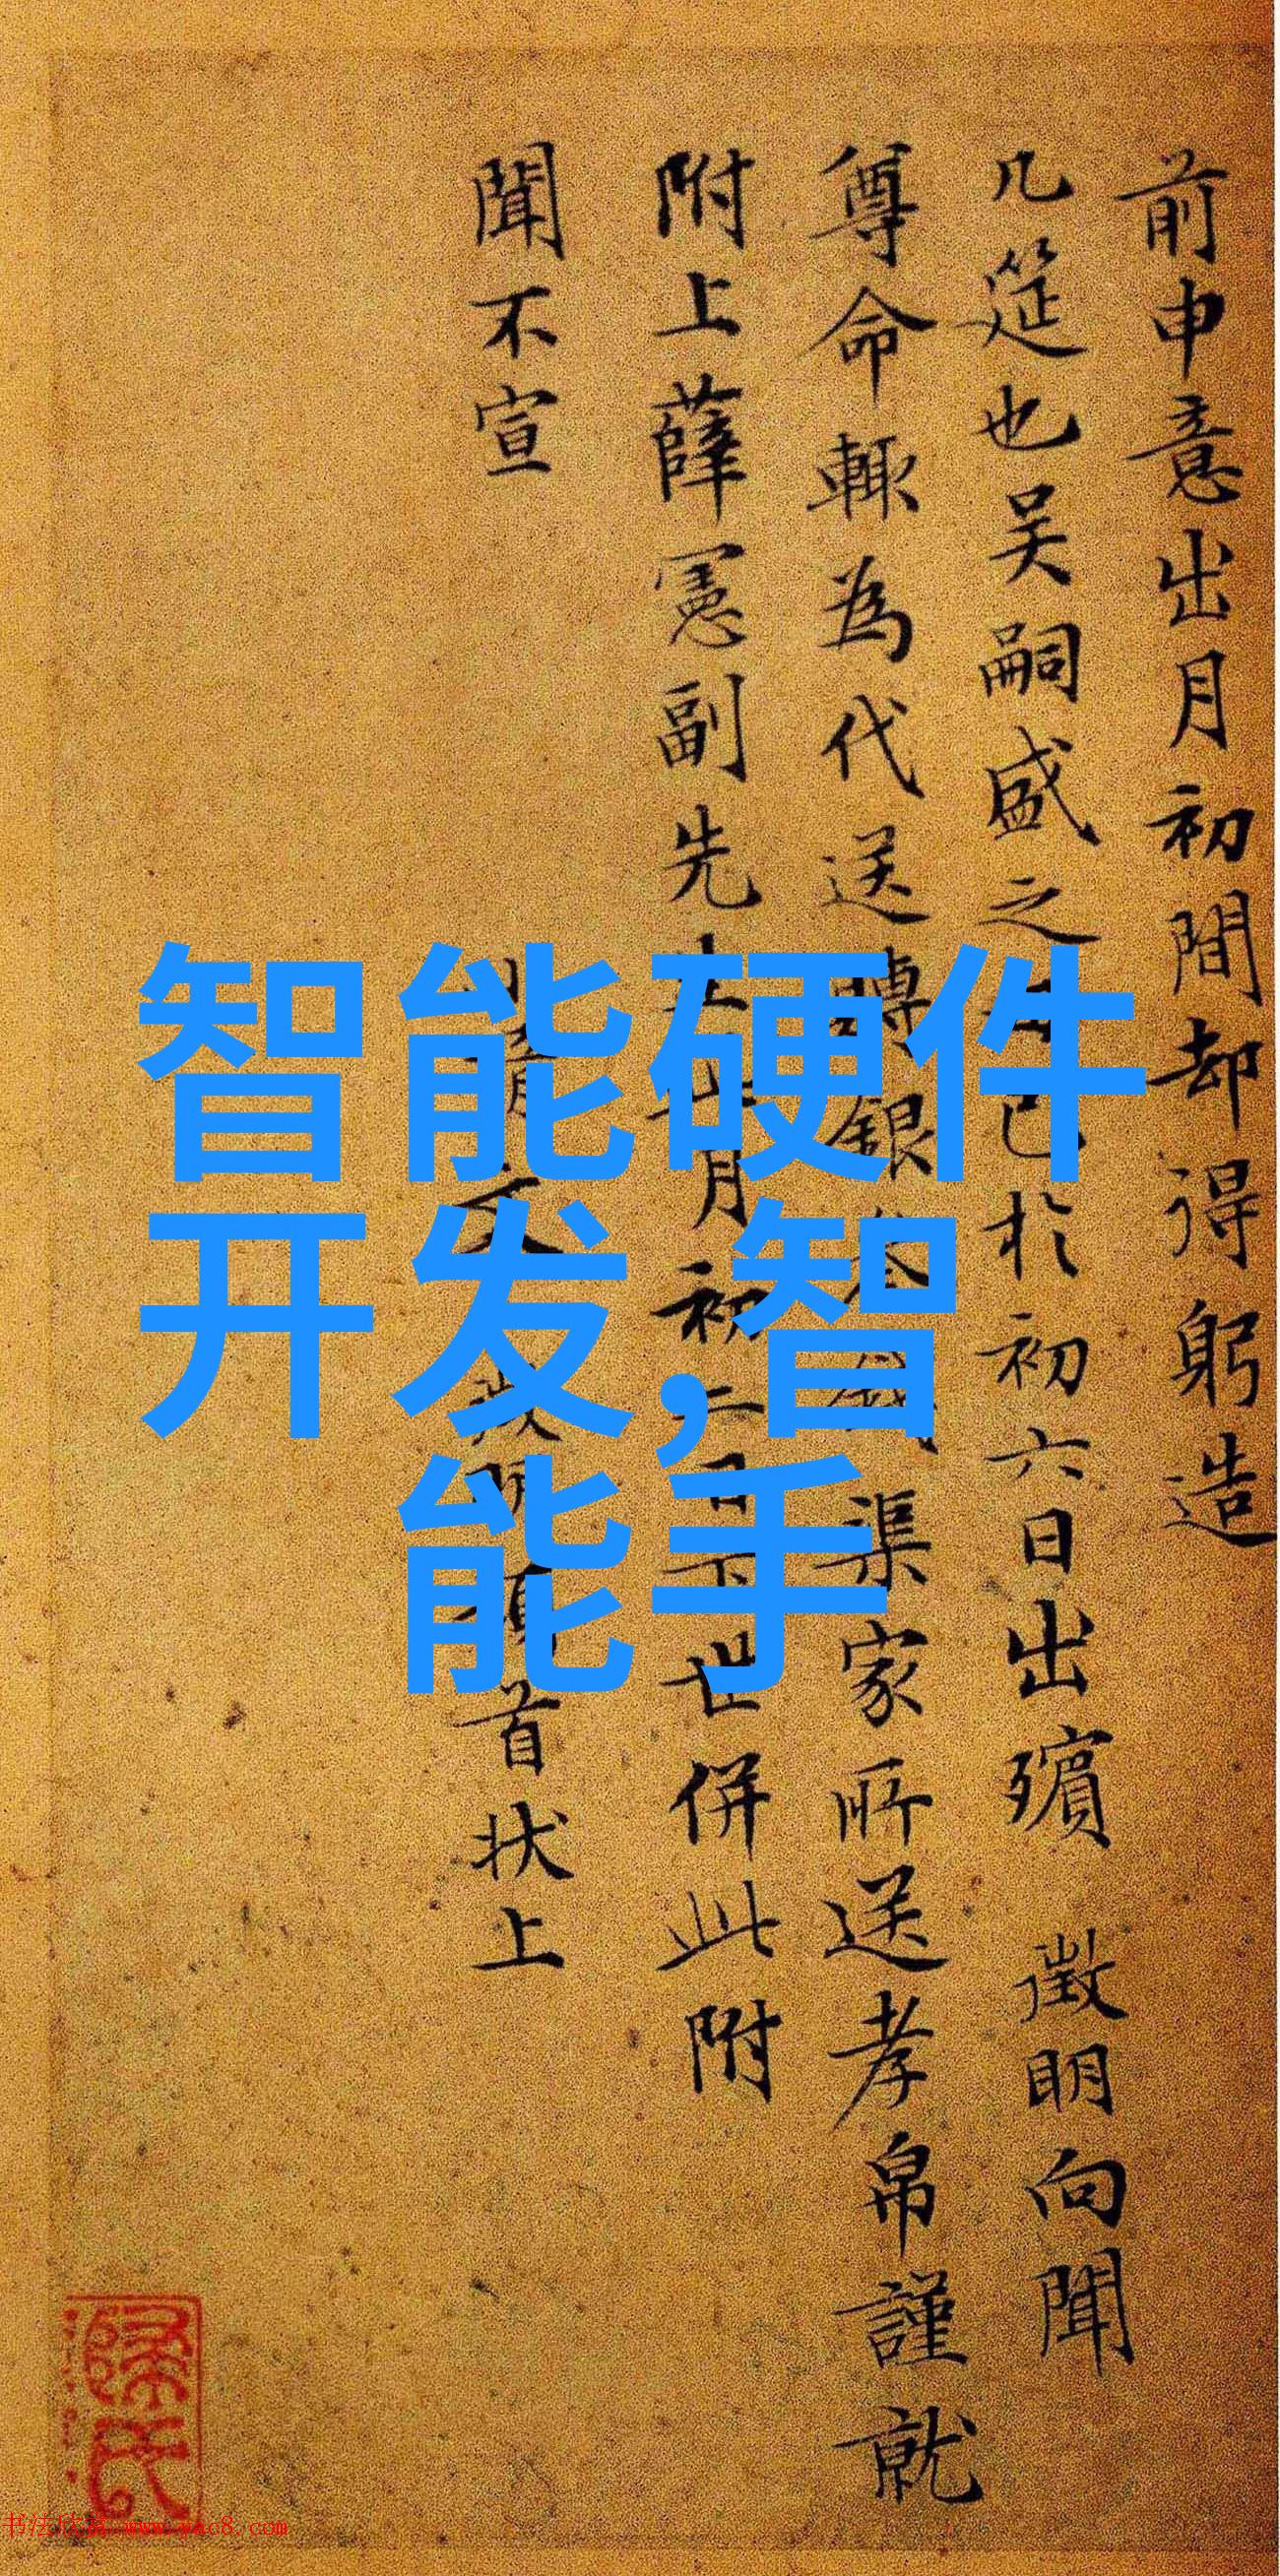 前申意出月初間却得躬造
几筵也吴嗣盛之 已於初六日出殯 徵明向聞
尊命輙為代送 銀 渠家所送孝帛謹就
附上薛憲副先 月初二日 世併此附
聞不宣
首状上
智能硬件
开发,智
能手
书法欣赏 www.yac8.com